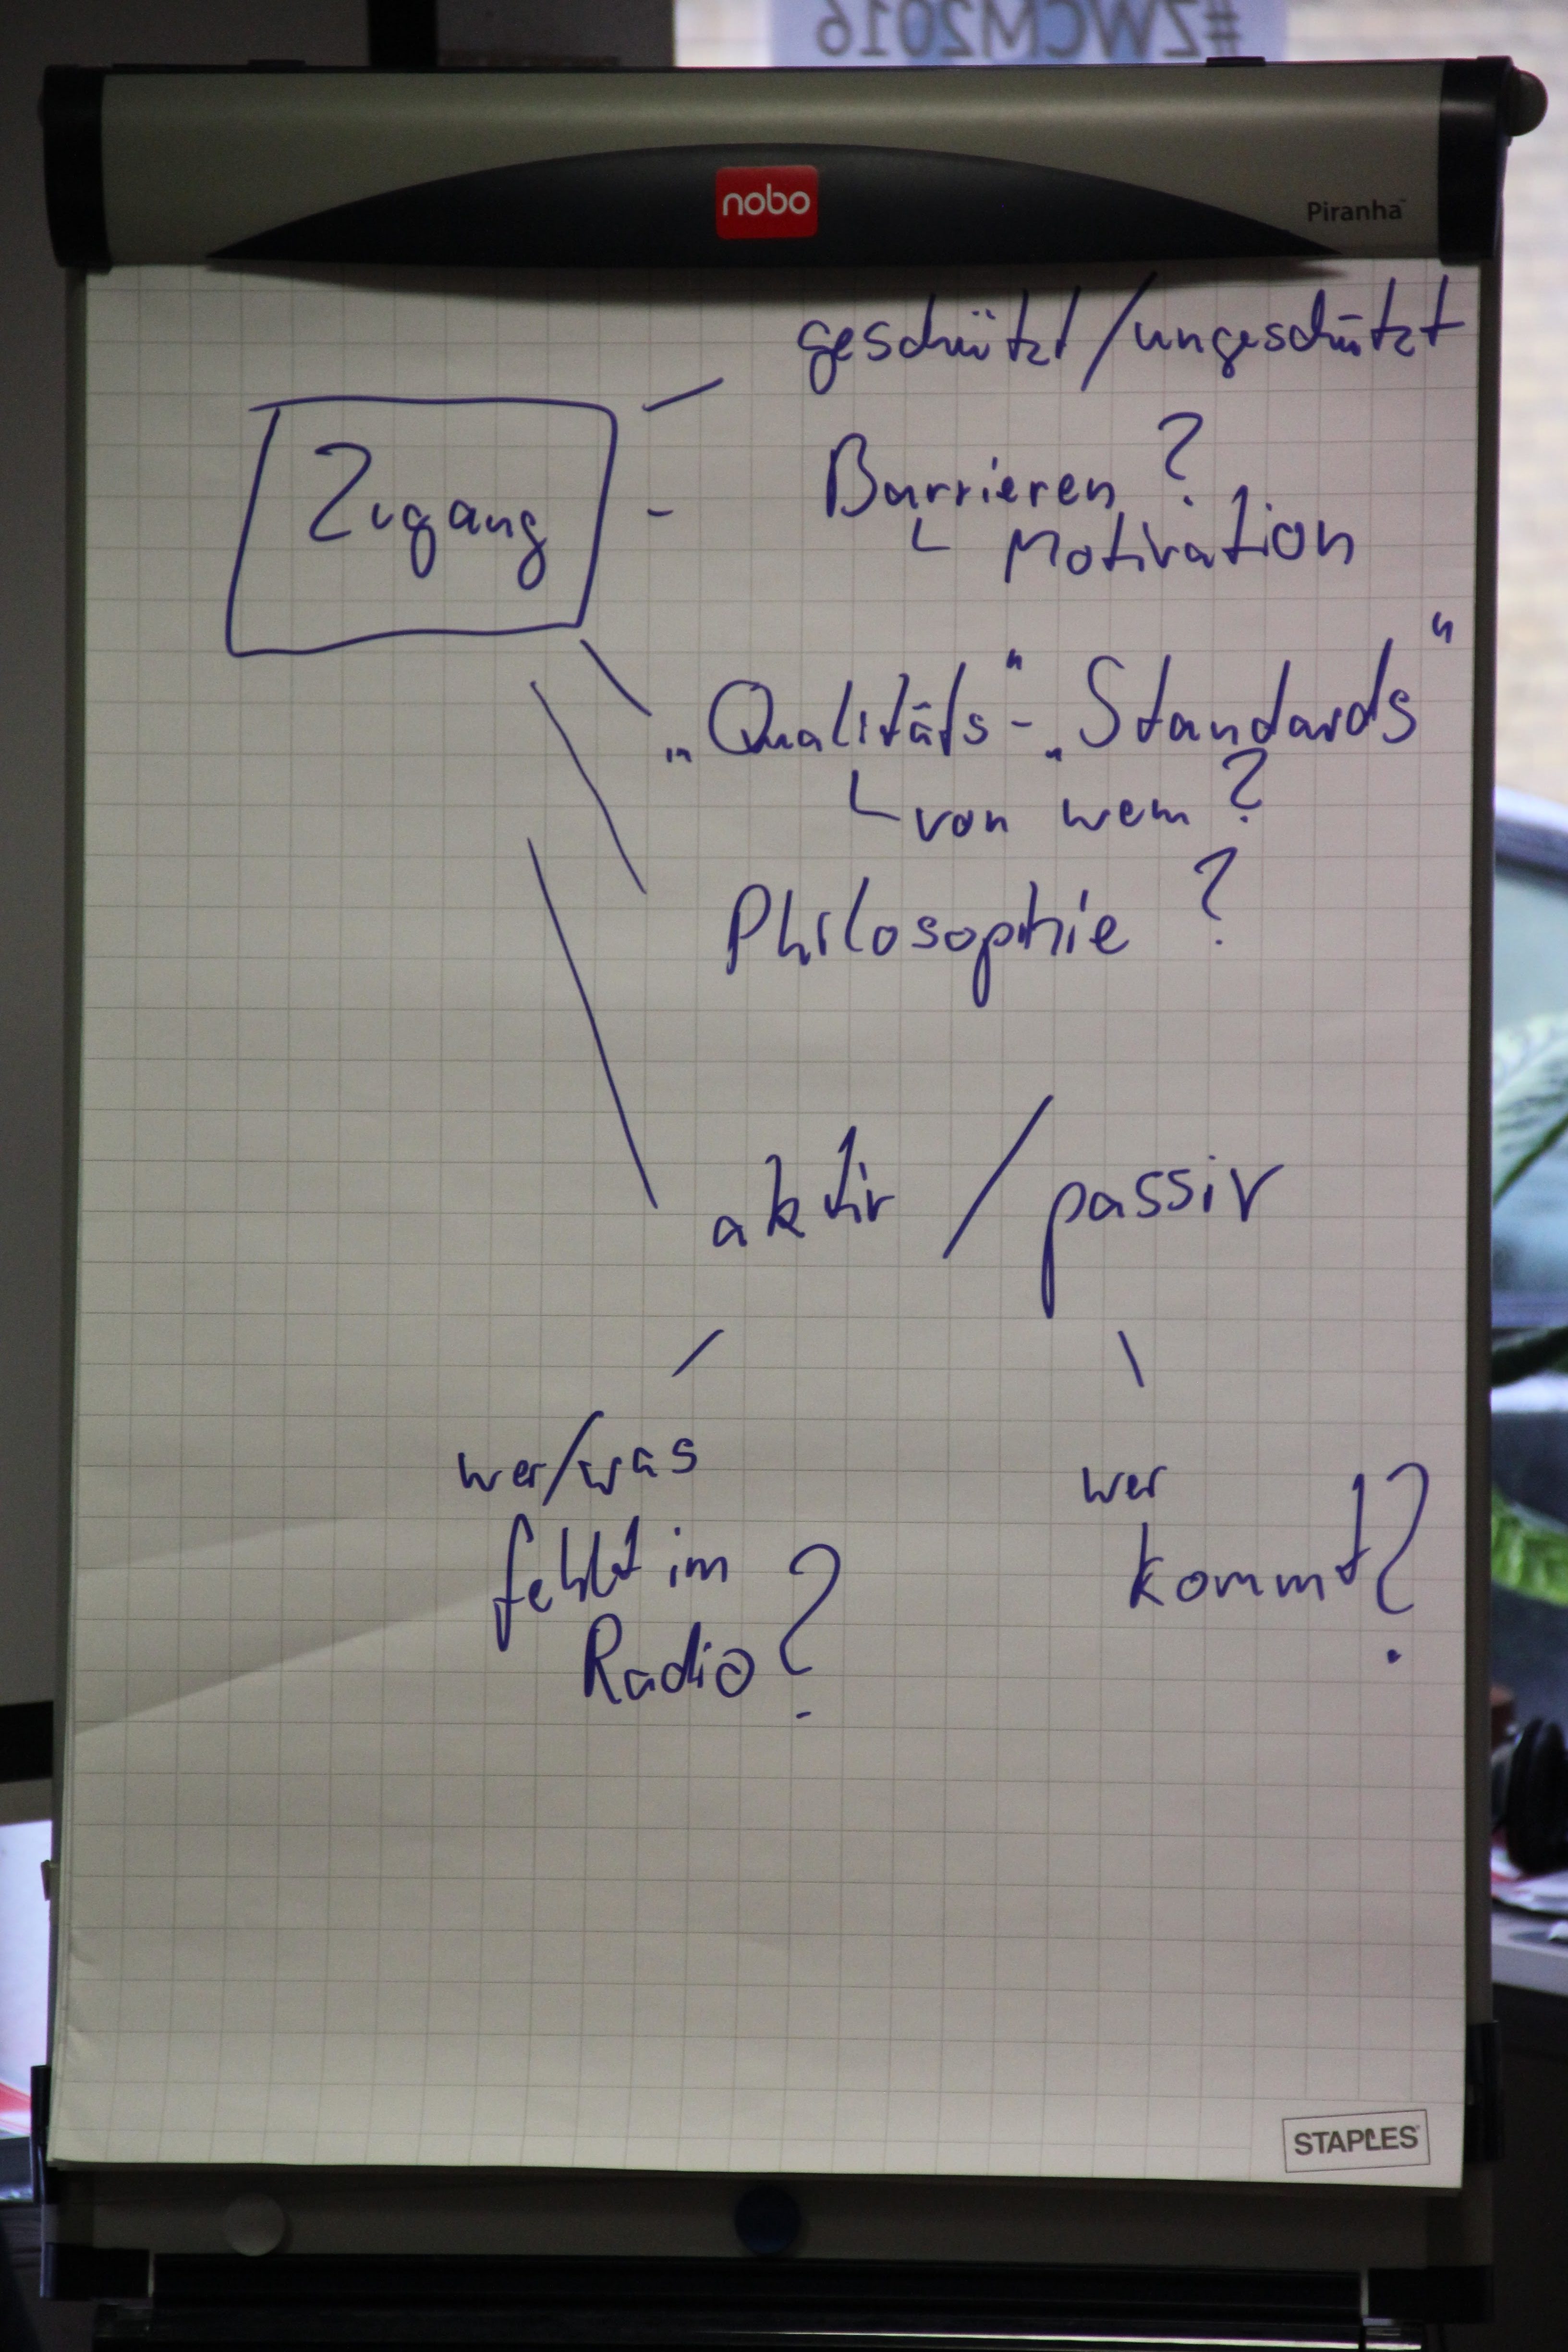 #ZWCM2016
nobo
Piranha™
geschützt/ungeschützt
Zugang
Barrieren?
Motivation
„Qualitäts“-„Standards“
von wem?
Philosophie?
aktiv / passiv
wer/was
fehlt im
Radio?
wer
kommt?
STAPLES